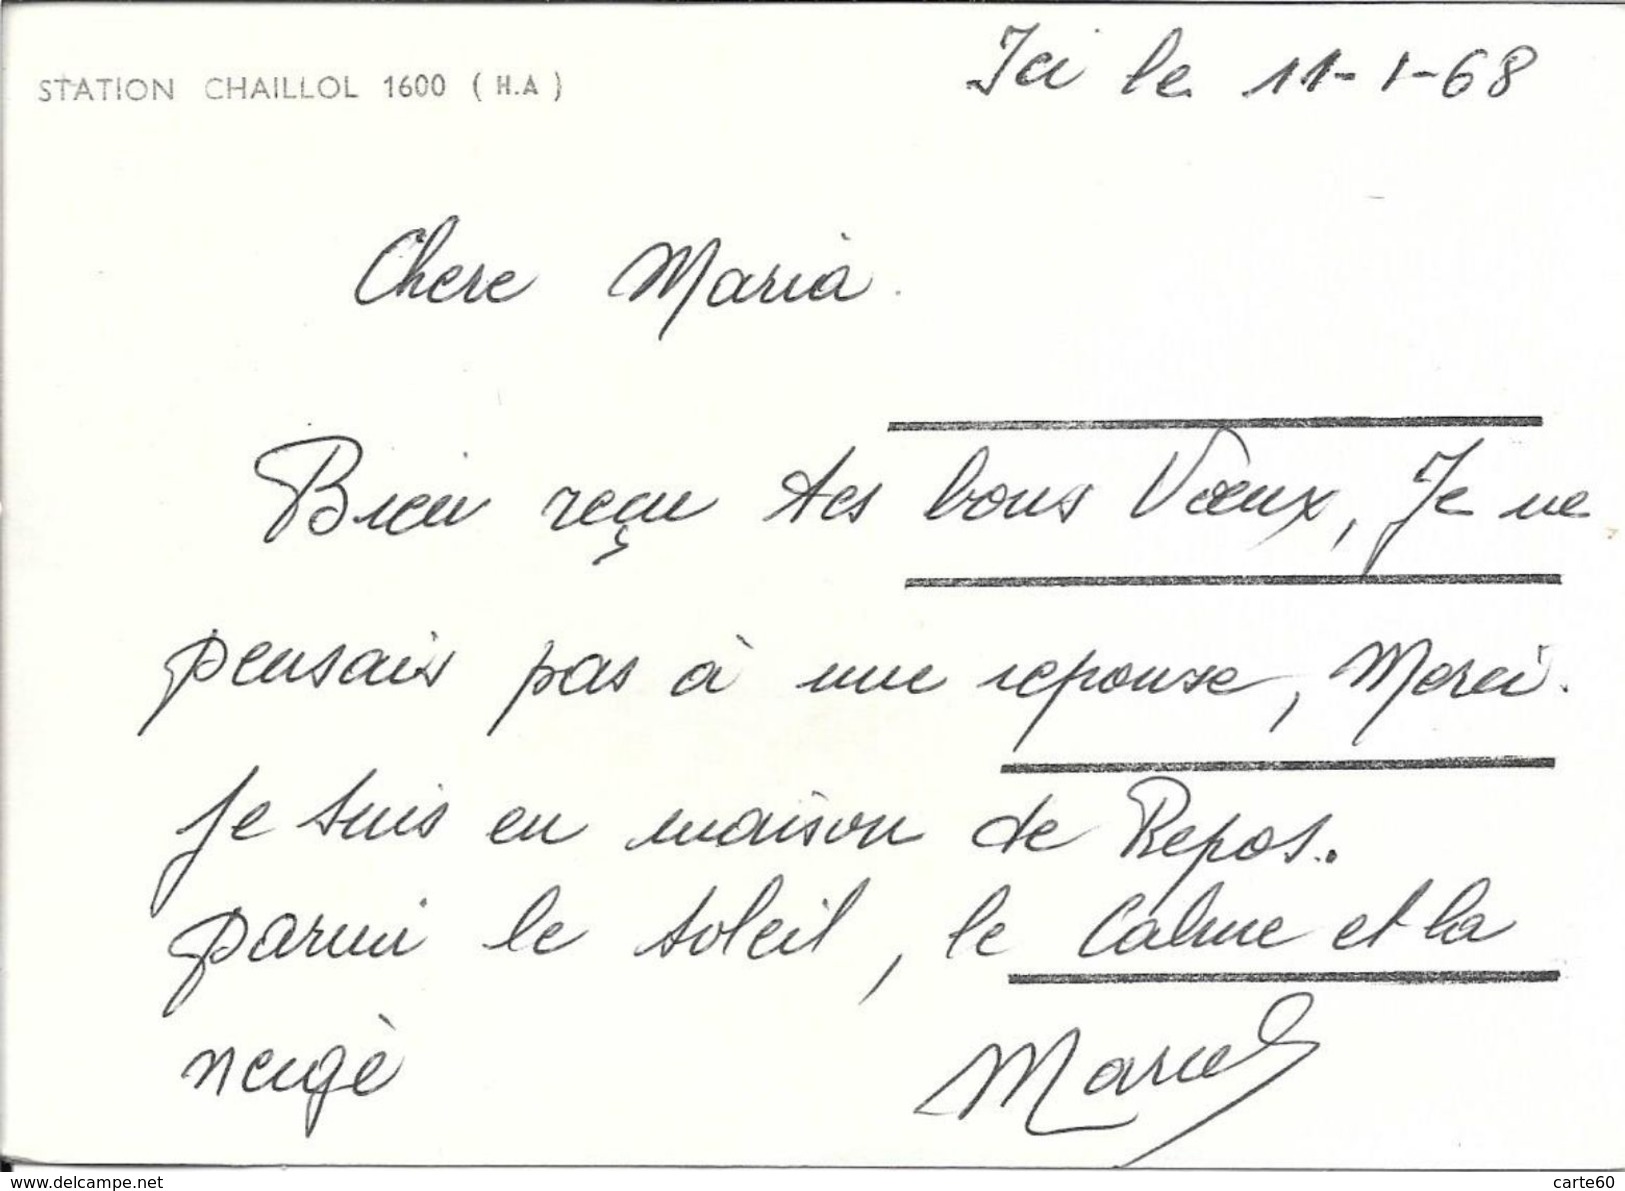 STATION CHAILLOL 1600 (H.A)
Ici le 11-1-68
Chere Maria.
Bien reçu tes bons Vœux, Je ne
pensais pas à une reponse, Merci.
Je suis en maison de Repos.
parmi le soleil, le Calme et la
neige
Marcel
www.delcampe.net
carte60